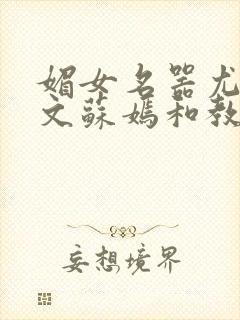 媚女名器尤
文蘇媽和教
妄想境界